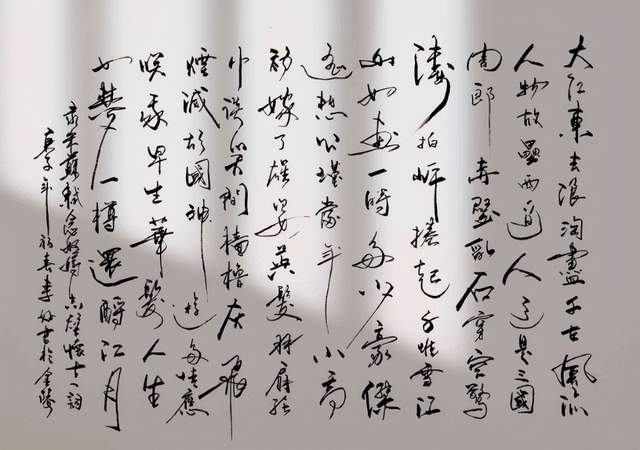 大江東去浪淘盡千古風流
人物故壘西邊人道是三國
周郎赤壁亂石穿空驚
濤拍岸捲起千堆雪江
山如畫一時多少豪傑
遙想公瑾當年小喬
初嫁了雄姿英發羽扇綸
巾談笑間檣櫓灰飛
煙滅故國神遊多情應
笑我早生華髮人生
如夢一樽還酹江月
宋蘇軾念奴嬌赤壁懷古一詞
庚子年初春李書於金陵